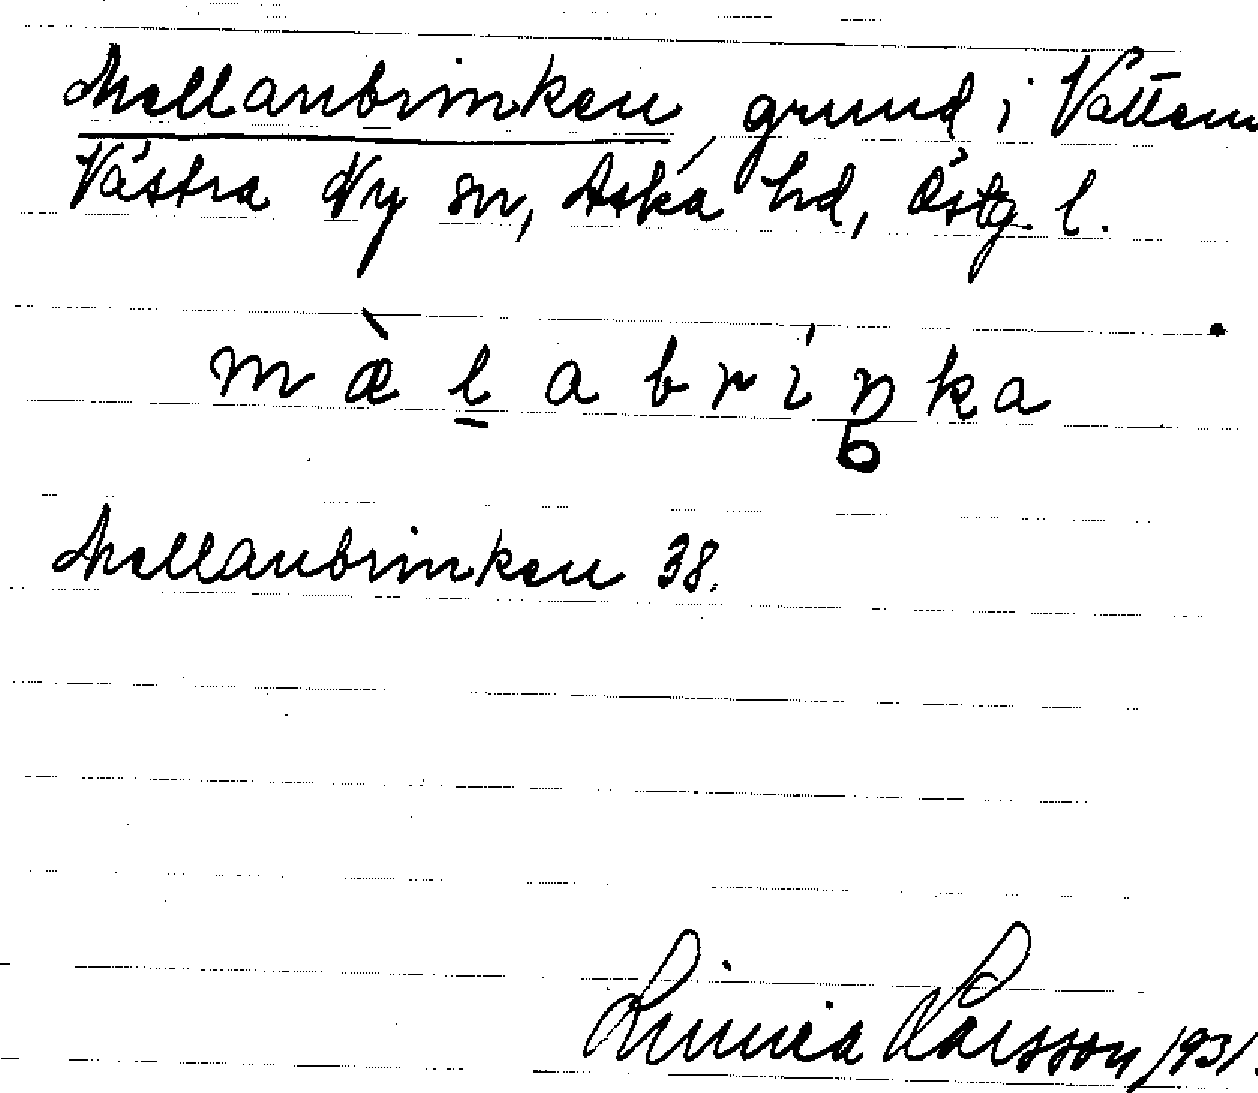 Mellanbrinken, grund i Vättern
Västra Ny sn, Aska hd, Östg. l.
mæ̀l̠abríŋka
Mellanbrinken 38.
Linnea Larsson 1931.